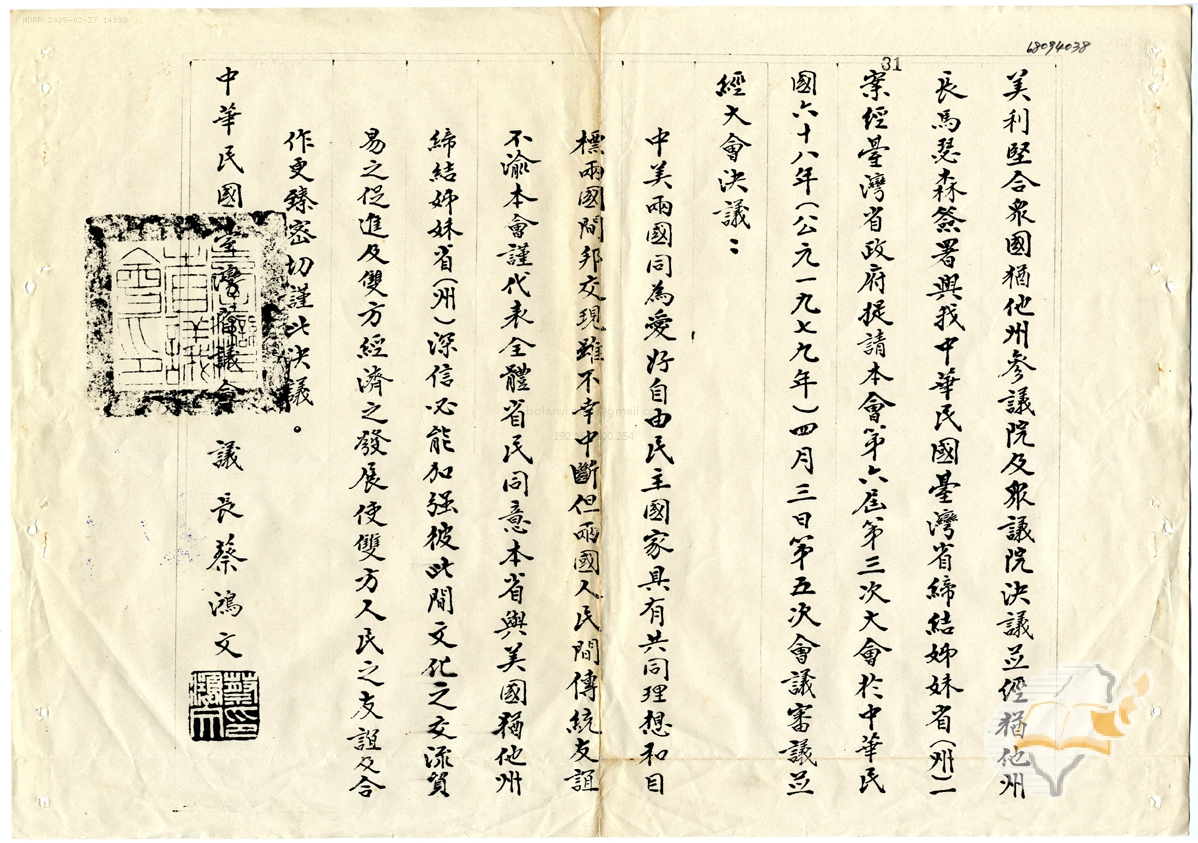 NDAP 2025-02-27 14:33
68094038
31
美利堅合眾國猶他州參議院及眾議院決議並經猶他州
長馬瑟森簽署與我中華民國臺灣省締結姊妹省(州)一
案經臺灣省政府提請本會第六屆第三次大會於中華民
國六十八年(公元一九七九年)四月三日第五次會議審議並
經大會決議:
中美兩國同為愛好自由民主國家具有共同理想和目
標兩國間邦交現雖不幸中斷但兩國人民間傳統友誼
不渝本會謹代表全體省民同意本省與美國猶他州
締結姊妹省(州)深信必能加强彼此間文化之交流貿
易之促進及雙方經濟之發展使雙方人民之友誼及合
作更臻密切謹此決議。
中華民國臺灣省議會 議長蔡鴻文